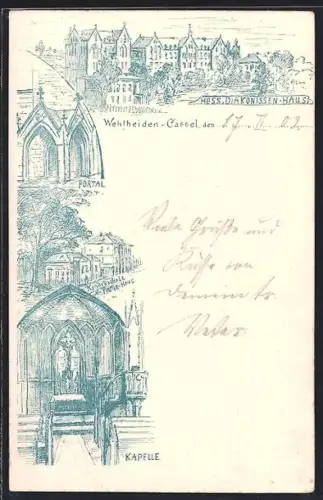 HESS. DIAKONISSEN-HAUS
Wehlheiden-Cassel, den
PORTAL
Viele Grüße und
Küsse von
Deinem tr.
Vater
KAPELLE